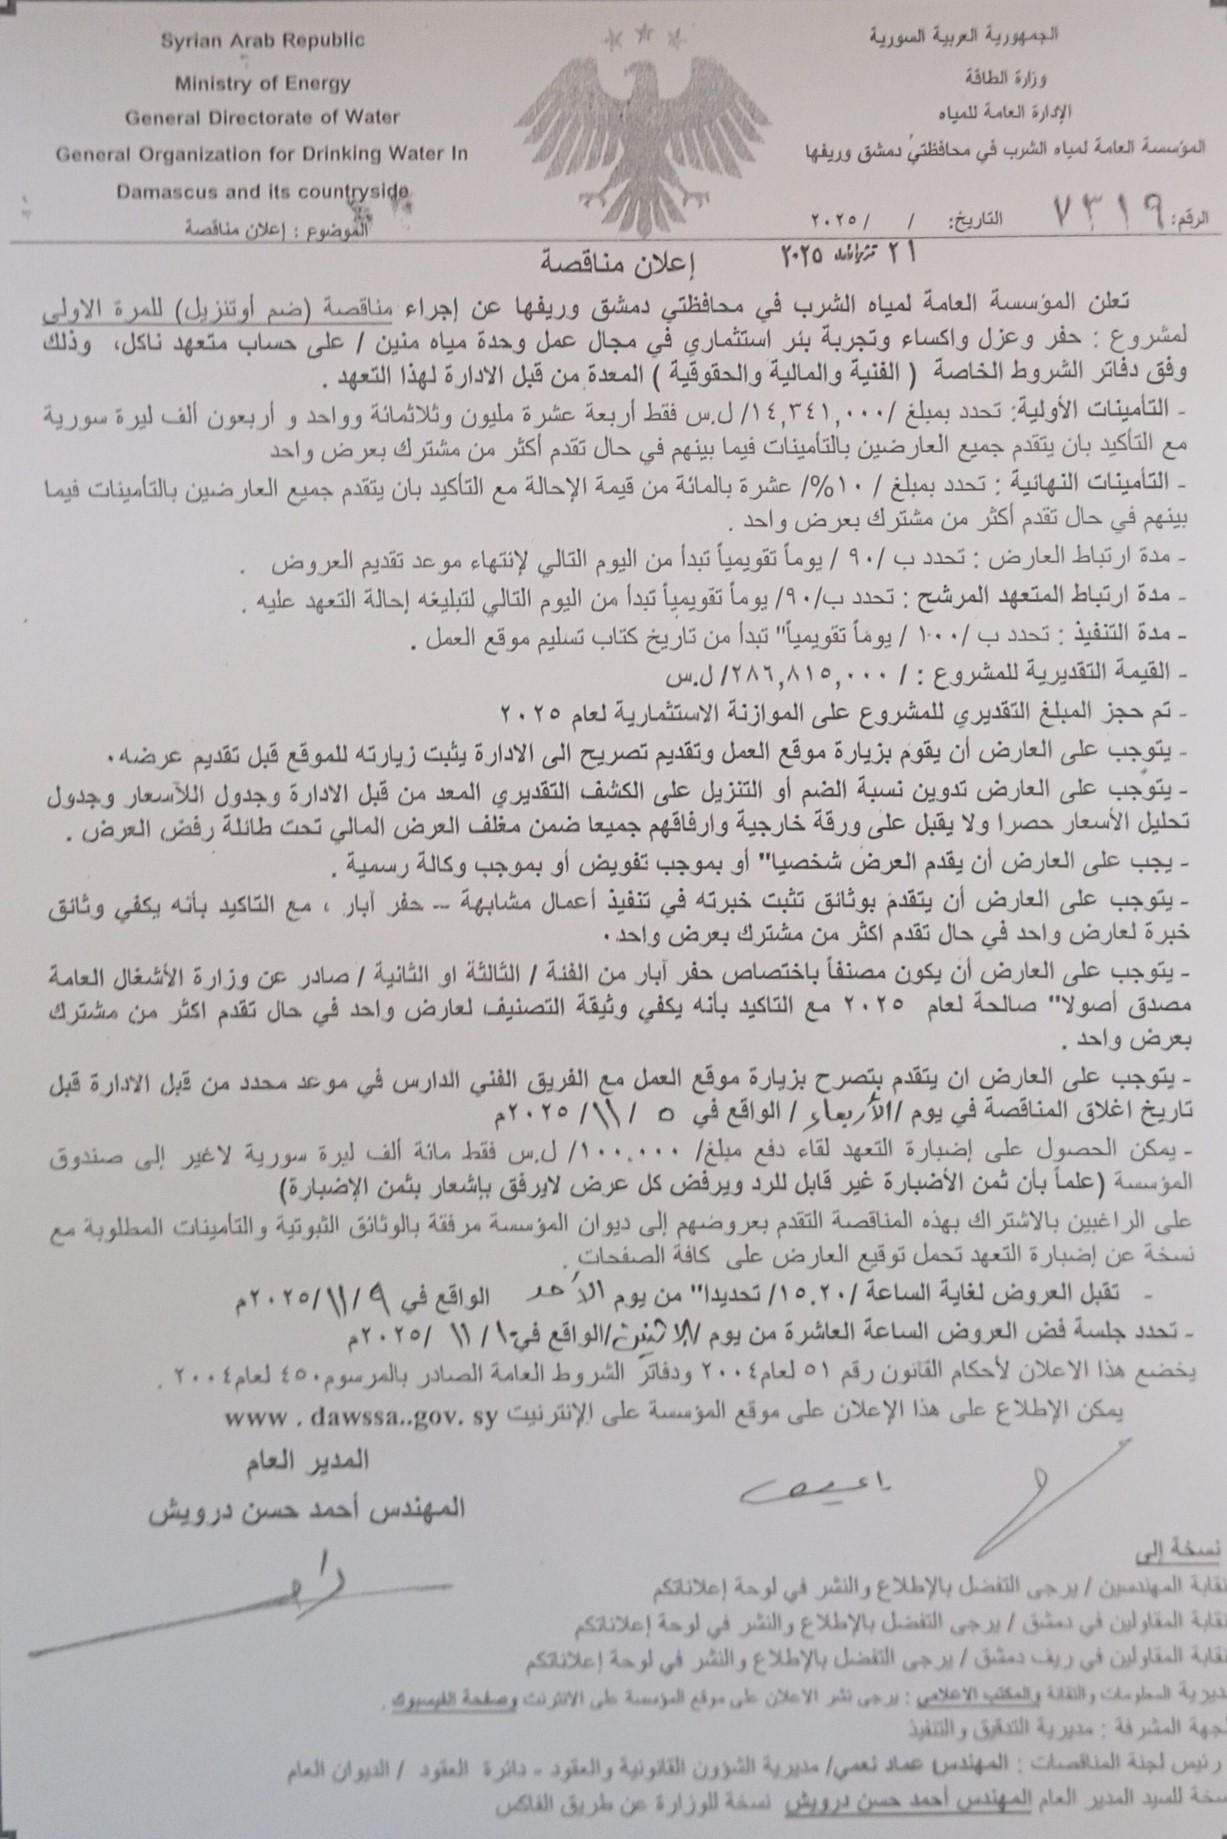 Syrian Arab Republic
Ministry of Energy
General Directorate of Water
General Organization for Drinking Water In
Damascus and its countryside
الموضوع : إعلان مناقصة
الجمهورية العربية السورية
وزارة الطاقة
الإدارة العامة للمياه
المؤسسة العامة لمياه الشرب في محافظتي دمشق وريفها
الرقم: ٧٣١٩ التاريخ: / / ٢٠٢٥
٢١ ٢٠٢٥
إعلان مناقصة
تعلن المؤسسة العامة لمياه الشرب في محافظتي دمشق وريفها عن إجراء مناقصة (ضم أوتنزيل) للمرة الاولى
لمشروع : حفر وعزل واكساء وتجربة بئر استثماري في مجال عمل وحدة مياه منين / على حساب متعهد ناكل، وذلك
وفق دفاتر الشروط الخاصة ( الفنية والمالية والحقوقية ) المعدة من قبل الادارة لهذا التعهد .
- التأمينات الأولية: تحدد بمبلغ /١٤,٣٤١,٠٠٠/ ل.س فقط أربعة عشرة مليون وثلاثمائة وواحد و أربعون ألف ليرة سورية
مع التأكيد بان يتقدم جميع العارضين بالتأمينات فيما بينهم في حال تقدم أكثر من مشترك بعرض واحد
- التأمينات النهائية : تحدد بمبلغ / ١٠%/ عشرة بالمائة من قيمة الإحالة مع التأكيد بان يتقدم جميع العارضين بالتأمينات فيما
بينهم في حال تقدم أكثر من مشترك بعرض واحد .
- مدة ارتباط العارض : تحدد ب /٩٠ / يوماً تقويمياً تبدأ من اليوم التالي لإنتهاء موعد تقديم العروض .
- مدة ارتباط المتعهد المرشح : تحدد ب/٩٠/ يوماً تقويمياً تبدأ من اليوم التالي لتبليغه إحالة التعهد عليه .
- مدة التنفيذ : تحدد ب /١٠٠ / يوماً تقويمياً" تبدأ من تاريخ كتاب تسليم موقع العمل .
- القيمة التقديرية للمشروع : / ٢٨٦,٨١٥,٠٠٠/ ل.س
- تم حجز المبلغ التقديري للمشروع على الموازنة الاستثمارية لعام ٢٠٢٥
- يتوجب على العارض أن يقوم بزيارة موقع العمل وتقديم تصريح الى الادارة يثبت زيارته للموقع قبل تقديم عرضه.
- يتوجب على العارض تدوين نسبة الضم أو التنزيل على الكشف التقديري المعد من قبل الادارة وجدول اللأسعار وجدول
تحليل الأسعار حصرا ولا يقبل على ورقة خارجية وارفاقهم جميعا ضمن مغلف العرض المالي تحت طائلة رفض العرض .
- يجب على العارض أن يقدم العرض شخصيا" أو بموجب تفويض أو بموجب وكالة رسمية .
- يتوجب على العارض أن يتقدم بوثائق تثبت خبرته في تنفيذ أعمال مشابهة – حفر آبار ، مع التاكيد بأنه يكفي وثائق
خبرة لعارض واحد في حال تقدم اكثر من مشترك بعرض واحد.
- يتوجب على العارض أن يكون مصنفاً باختصاص حفر آبار من الفئة / الثالثة او الثانية / صادر عن وزارة الأشغال العامة
مصدق أصولا" صالحة لعام ٢٠٢٥ مع التاكيد بأنه يكفي وثيقة التصنيف لعارض واحد في حال تقدم اكثر من مشترك
بعرض واحد .
- يتوجب على العارض ان يتقدم بتصرح بزيارة موقع العمل مع الفريق الفني الدارس في موعد محدد من قبل الادارة قبل
تاريخ اغلاق المناقصة في يوم /الأربعاء / الواقع في ٥ /١١/ ٢٠٢٥م
- يمكن الحصول على إضبارة التعهد لقاء دفع مبلغ/ ١٠٠.٠٠٠/ ل.س فقط مائة ألف ليرة سورية لاغير إلى صندوق
المؤسسة (علماً بأن ثمن الأضبارة غير قابل للرد ويرفض كل عرض لايرفق بإشعار بثمن الإضبارة)
على الراغبين بالاشتراك بهذه المناقصة التقدم بعروضهم إلى ديوان المؤسسة مرفقة بالوثائق الثبوتية والتأمينات المطلوبة مع
نسخة عن إضبارة التعهد تحمل توقيع العارض على كافة الصفحات.
- تقبل العروض لغاية الساعة /١٥.٢٠/ تحديدا" من يوم الأحد الواقع في ٩ /١١/ ٢٠٢٥م
- تحدد جلسة فض العروض الساعة العاشرة من يوم /الاثنين/الواقع في ١٠/ ١١ /٢٠٢٥م
يخضع هذا الاعلان لأحكام القانون رقم ٥١ لعام٢٠٠٤ ودفاتر الشروط العامة الصادر بالمرسوم٤٥٠ لعام٢٠٠٤ .
يمكن الإطلاع على هذا الإعلان على موقع المؤسسة على الإنترنيت www . dawssa..gov. sy
المدير العام
المهندس أحمد حسن درويش
نسخة إلى
نقابة المهندسين / يرجى التفضل بالإطلاع والنشر في لوحة إعلاناتكم
نقابة المقاولين في دمشق / يرجى التفضل بالإطلاع والنشر في لوحة إعلاناتكم
نقابة المقاولين في ريف دمشق / يرجى التفضل بالإطلاع والنشر في لوحة إعلاناتكم
ديرية المعلومات والتقانة والمكتب الاعلامي : يرجى نشر الاعلان على موقع المؤسسة على الانترنت وصفحة الفيسبوك .
لجهة المشرفة : مديرية التدقيق والتنفيذ
رئيس لجنة المناقصات : المهندس عماد نعمي/ مديرية الشؤون القانونية والعقود - دائرة العقود / الديوان العام
سخة للسيد المدير العام المهندس أحمد حسن درويش نسخة للوزارة عن طريق الفاكس